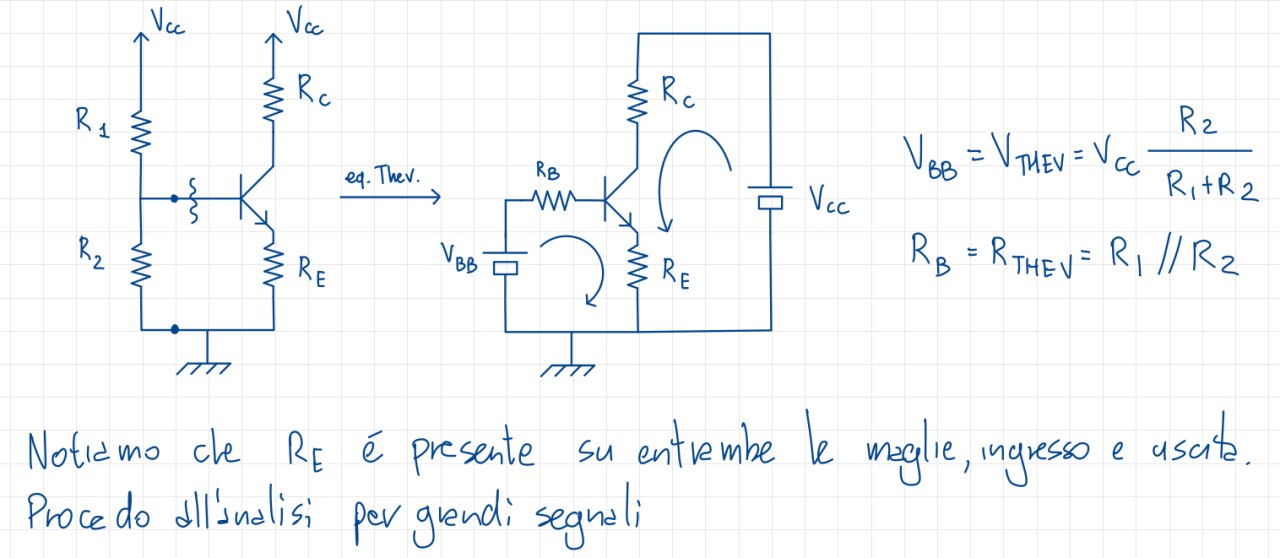 Vcc Vcc
R1 Rc
R2 RE
eq. Thev.
Rc
RB
VBB RE
Vcc
VBB = VTHEV = Vcc R2 / R1+R2
RB = RTHEV = R1 // R2
Notiamo che RE é presente su entrambe le maglie, ingresso e uscita.
Procedo all'analisi per grandi segnali